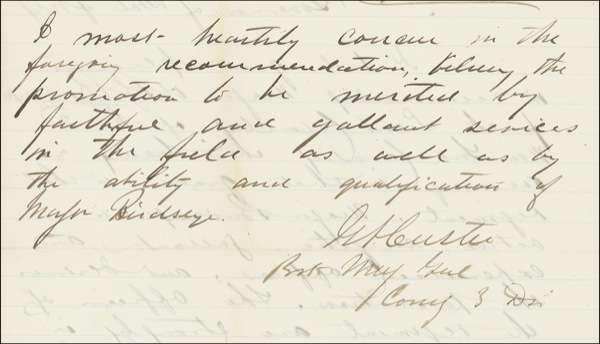 I most heartily concur in the
foregoing recommendation, believing the
promotion to be merited by
faithful and gallant services
in the field as well as by
the ability and qualification of
Major Birdseye.
GACuster
Bvt Maj Genl
Comg 3 Div